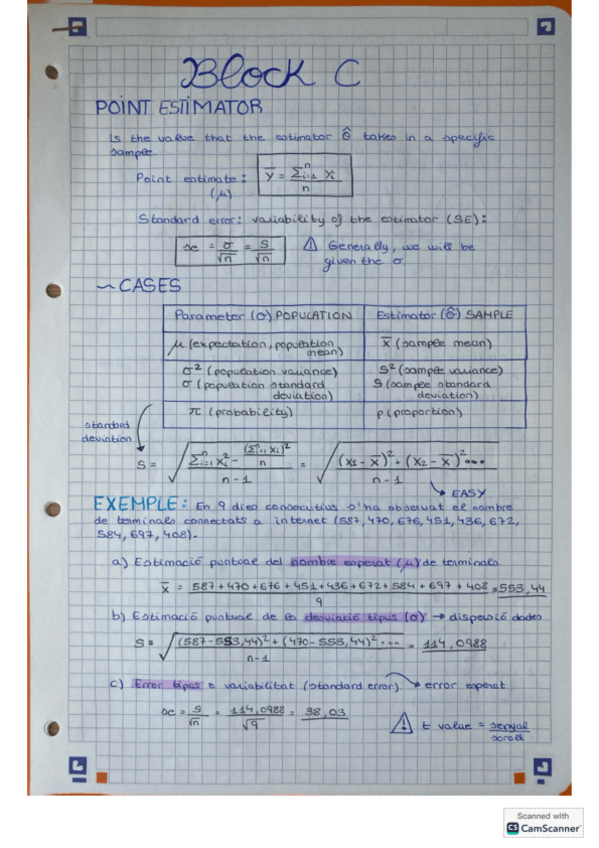 Block C
POINT ESTIMATOR
Is the value that the estimator θ̂ takes in a specific
sample.
Point estimate: ȳ = Σⁿᵢ₌₁ yᵢ / n
(μ)
Standard error: variability of the estimator (SE):
se = σ/√n = S/√n ⚠ Generally, we will be
given the σ
~ CASES
Parameter (σ) POPULATION Estimator (θ̂) SAMPLE
μ (expectation, population mean) x̄ (sample mean)
σ² (population variance) S² (sample variance)
σ (population standard deviation) S (sample standard deviation)
π (probability) p (proportion)
standard
deviation
S = √((Σⁿᵢ₌₁ xᵢ² − (Σⁿᵢ₌₁ xᵢ)²/n) / (n-1)) = √(((x₁ − x̄)² + (x₂ − x̄)² ...) / (n-1))
↳ EASY
EXEMPLE: En 9 dies consecutius s'ha observat el nombre
de terminals connectats a internet (587, 470, 676, 451, 436, 672,
584, 697, 408).
a) Estimació puntual del nombre esperat (μ) de terminals
x̄ = (587 + 470 + 676 + 451 + 436 + 672 + 584 + 697 + 408) / 9 = 553,44
b) Estimació puntual de la desviació tipus (σ) → dispersió dades
S = √(((587-553,44)² + (470-553,44)² ...) / (n-1)) = 114,0988
c) Error tipus o variabilitat (standard error) → error esperat
se = S/√n = 114,0988/√9 = 38,03
⚠ t value = senyal/soroll
Scanned with
CS CamScanner